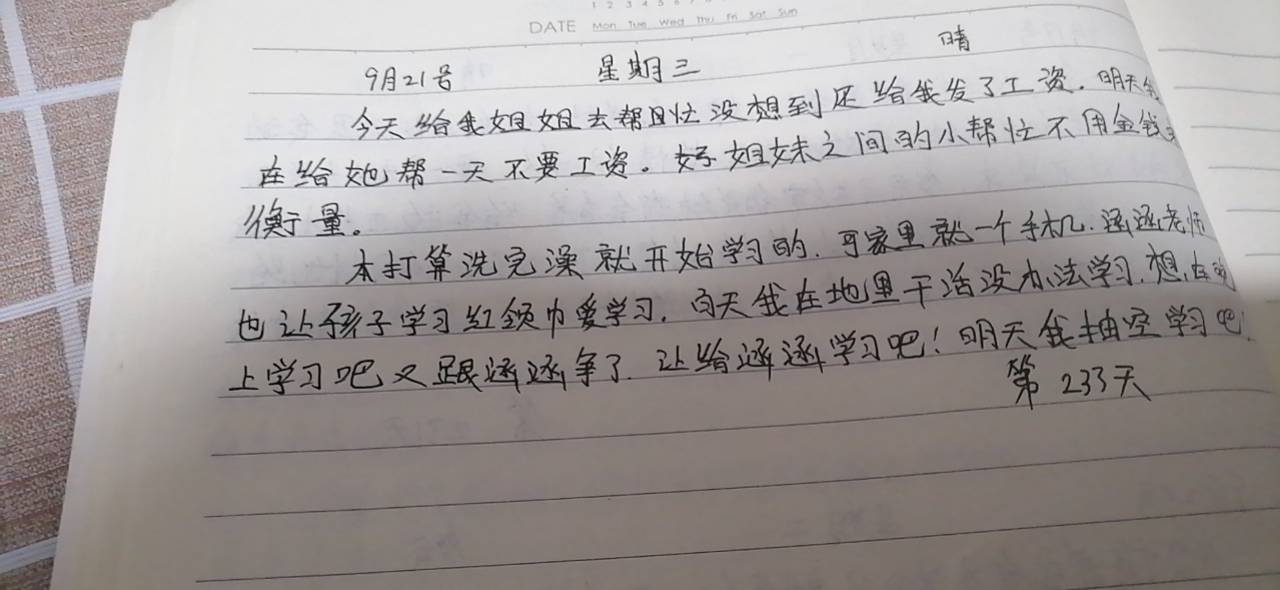 1 2 3 4 5 6 7
DATE Mon Tue Wed Thu Fri Sat Sun
9月21号 星期三 晴
今天给我姐姐去帮忙没想到还给我发了工资.明天我
在给她帮一天不要工资。好姐妹之间的小帮忙不用金钱
衡量。
本打算洗完澡就开始学习的.可家里就一个手机.涵涵老师
也让孩子学习红领巾爱学习.白天我在地里干活没办法学习.想在晚
上学习吧又跟涵涵争了.让给涵涵学习吧!明天我抽空学习吧
第233天